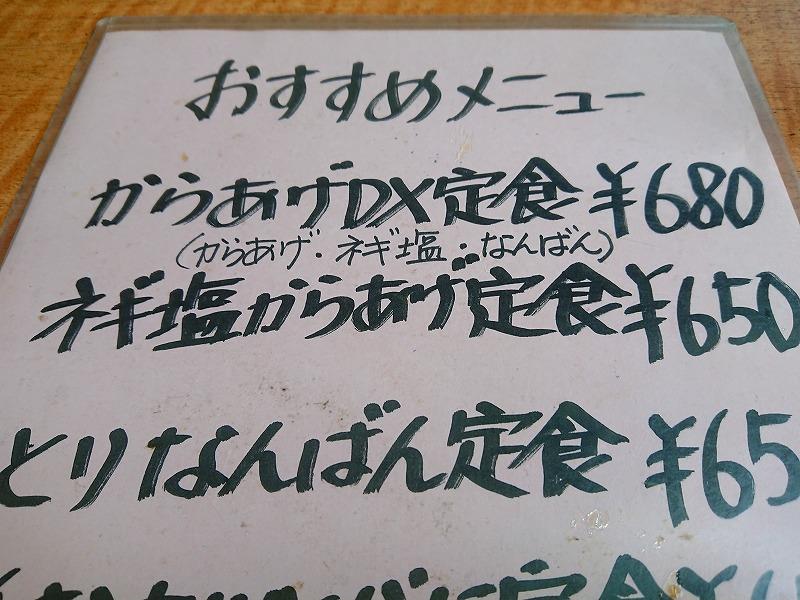 おすすめメニュー
からあげDX定食 ¥680
(からあげ・ネギ塩・なんばん)
ネギ塩からあげ定食 ¥650
とりなんばん定食 ¥65
定食